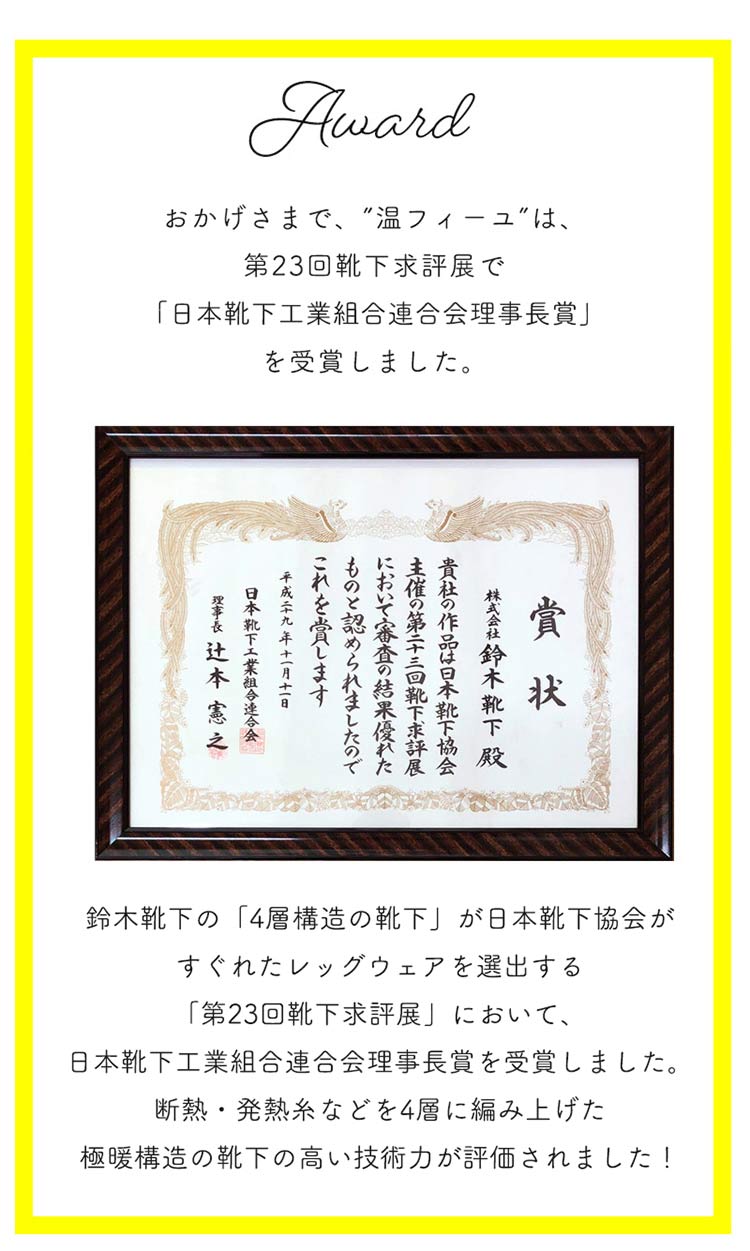 Award
おかげさまで、”温フィーユ”は、
第23回靴下求評展で
「日本靴下工業組合連合会理事長賞」
を受賞しました。
賞状
株式会社 鈴木靴下 殿
貴社の作品は日本靴下協会
主催の第二十三回靴下求評展
において審査の結果優れた
ものと認められましたので
これを賞します
平成二十九年十一月十一日
日本靴下工業組合連合会
理事長 辻本憲之
鈴木靴下の「4層構造の靴下」が日本靴下協会が
すぐれたレッグウェアを選出する
「第23回靴下求評展」において、
日本靴下工業組合連合会理事長賞を受賞しました。
断熱・発熱糸などを4層に編み上げた
極暖構造の靴下の高い技術力が評価されました！